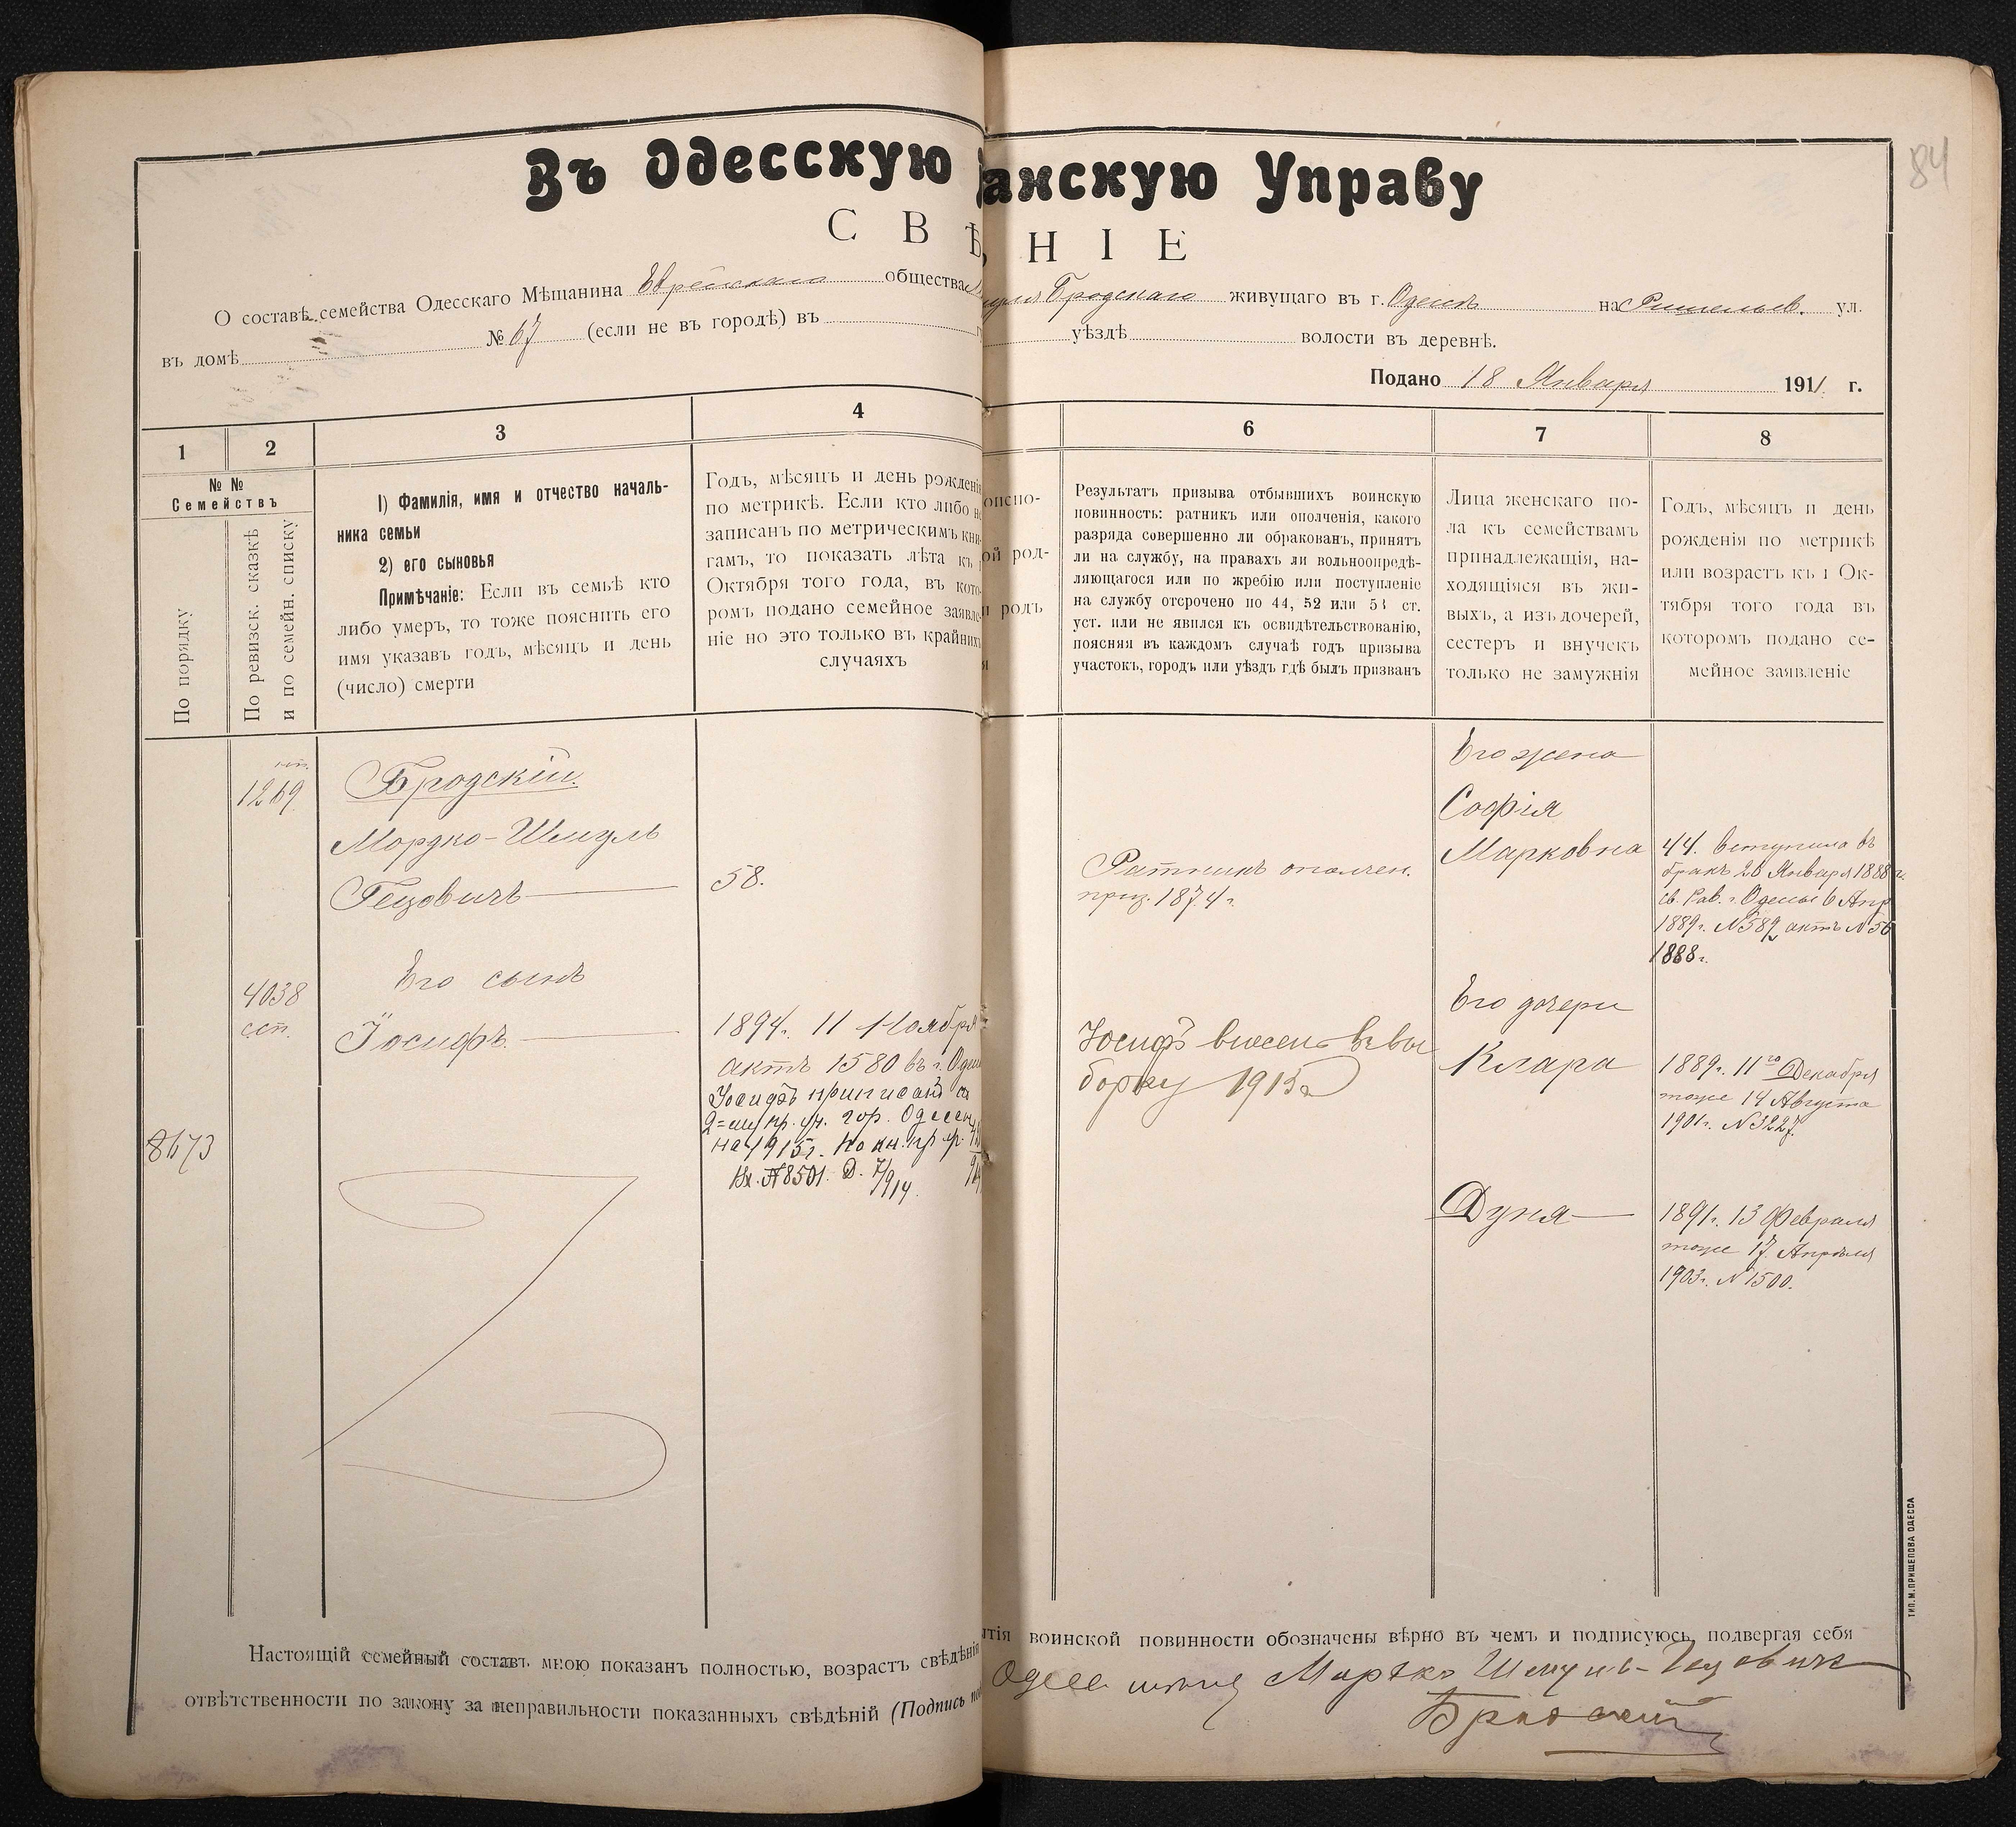 Въ Одесскую анскую Управу
СВѢНІЕ
84
О составѣ семейства Одесскаго Мѣщанина Еврейскаго общества Бродскаго живущаго въ г. Одессѣ на Ришельев. ул.
въ домѣ № 67 (если не въ городѣ) въ уѣздѣ волости въ деревнѣ.
Подано 18 Января 1911 г.
1
2
3
4
6
7
8
№ №
Семействъ
По порядку
По ревизск. сказкѣ
и по семейн. списку
1) Фамилія, имя и отчество началь-
ника семьи
2) его сыновья
Примѣчаніе: Если въ семьѣ кто
либо умеръ, то тоже пояснить его
имя указавъ годъ, мѣсяцъ и день
(число) смерти
Годъ, мѣсяцъ и день рожденія
по метрикѣ. Если кто либо не
записанъ по метрическимъ кни-
гамъ, то показать лѣта къ
Октября того года, въ кото-
ромъ подано семейное заявле-
ніе но это только въ крайнихъ
случаяхъ
Результатъ призыва отбывшихъ воинскую
повинность: ратникъ или ополченія, какого
разряда совершенно ли обракованъ, принятъ
ли на службу, на правахъ ли вольноопредѣ-
ляющагося или по жребію или поступленіе
на службу отсрочено по 44, 52 или 53 ст.
уст. или не явился къ освидѣтельствованію,
поясняя въ каждомъ случаѣ годъ призыва
участокъ, городъ или уѣздъ гдѣ былъ призванъ
Лица женскаго по-
ла къ семействамъ
принадлежащія, на-
ходящіяся въ жи-
выхъ, а изъ дочерей,
сестеръ и внучекъ
только не замужнія
Годъ, мѣсяцъ и день
рожденія по метрикѣ
или возрастъ къ 1 Ок-
тября того года въ
которомъ подано се-
мейное заявленіе
1269
Бродскій
Мордко-Шмуль
Гецовичъ
58.
Ратникъ ополчен.
приз. 1874 г.
Его жена
Софія
Марковна
44. вступила въ
бракъ 20 Января 1888 г.
св. Рав. г. Одессы 6 Апр
1889 г. №589 актъ №56
1888 г.
4038
сп.
Его сынъ
Іосифъ
1894 г. 11 Ноября
актъ 1580 въ г. Одес
Іосифъ приписанъ
2=му пр. уч. гор. Одессы
на 1915 г. по кн. пр
Вх. №8501. Д. 7/914.
8673
Іосифъ внесенъ въ вы
борку 1915 г.
Его дочери
Клара
1889 г. 11го Декабря
тоже 14 Августа
1901 г. №3227.
Дуня
1891 г. 13 Февраля
тоже 17 Апрѣля
1903 г. №1500.
Настоящій семейный составъ мною показанъ полностью, возрастъ свѣдѣнія воинской повинности обозначены вѣрно въ чемъ и подписуюсь подвергая себя
отвѣтственности по закону за неправильности показанныхъ свѣдѣній (Подпись
Мордко Шмуль-Гецовичъ
Бродскій
ТИП. М. ПРИЩЕПОВА ОДЕССА